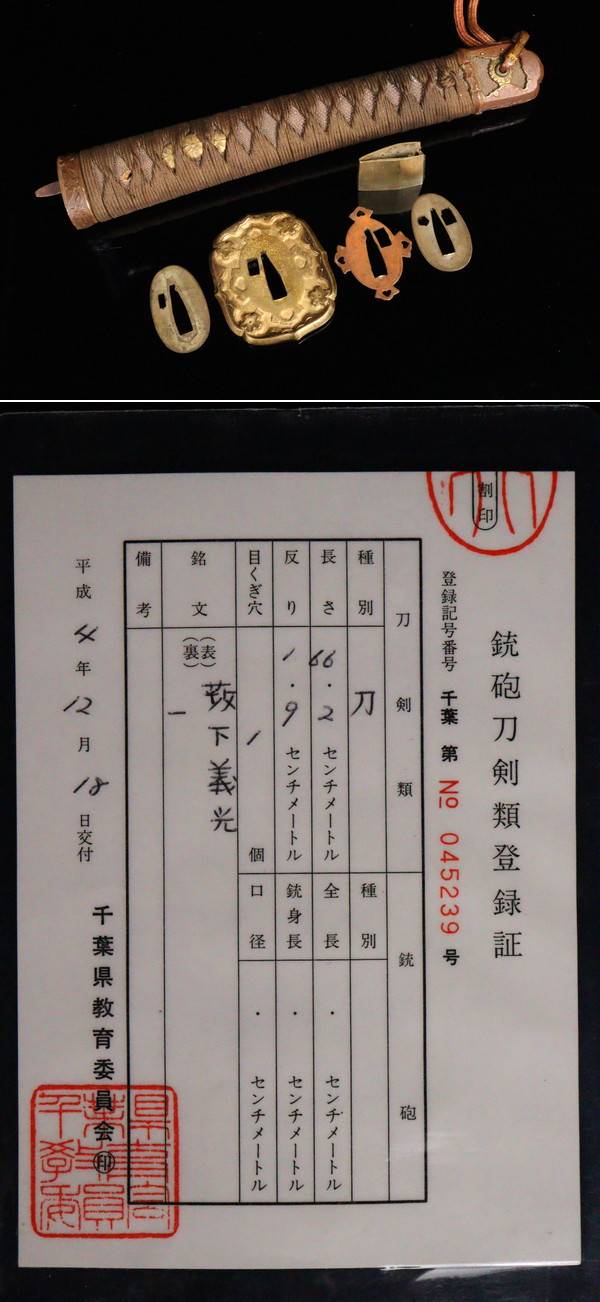 割印
銃砲刀剣類登録証
登録記号番号 千葉 第 No 045239 号
刀剣類
種別 刀
長さ 66.2 センチメートル
反り 1.9 センチメートル
目くぎ穴 1 個
銘文 (表)(裏)
下義光
一
備考
銃砲
種別
全長 ・ センチメートル
銃身長 ・ センチメートル
口径 ・ センチメートル
平成4年12月18日交付
千葉県教育委員会㊞